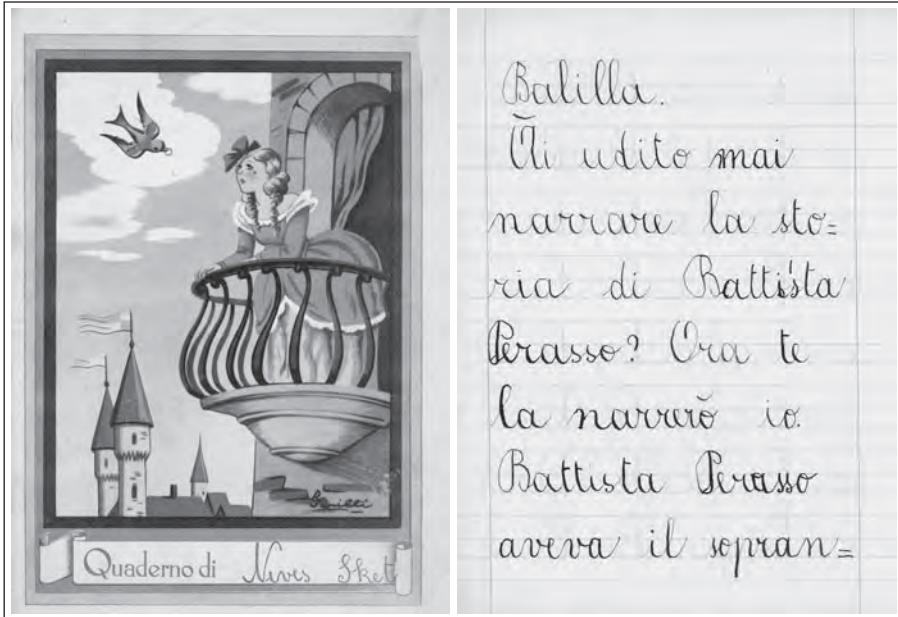 Quaderno di Nives Sket
Balilla.
Ai udito mai
narrare la sto=
ria di Battista
Perasso? Ora te
la narrerò io.
Battista Perasso
aveva il sopran=